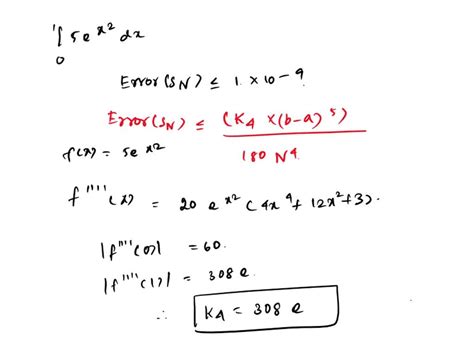 ∫₀¹ 5e^x2 dx
Error(SN) ≤ 1 × 10-9
Error(SN) ≤ (K4 ×(b-a)^5) / 180 N^4
f(x) = 5e^x2
f''''(x) = 20 e^x2 (4x^4 + 12x^2+3).
|f''''(0)| = 60.
|f''''(1)| = 308 e.
∴ K4 = 308 e